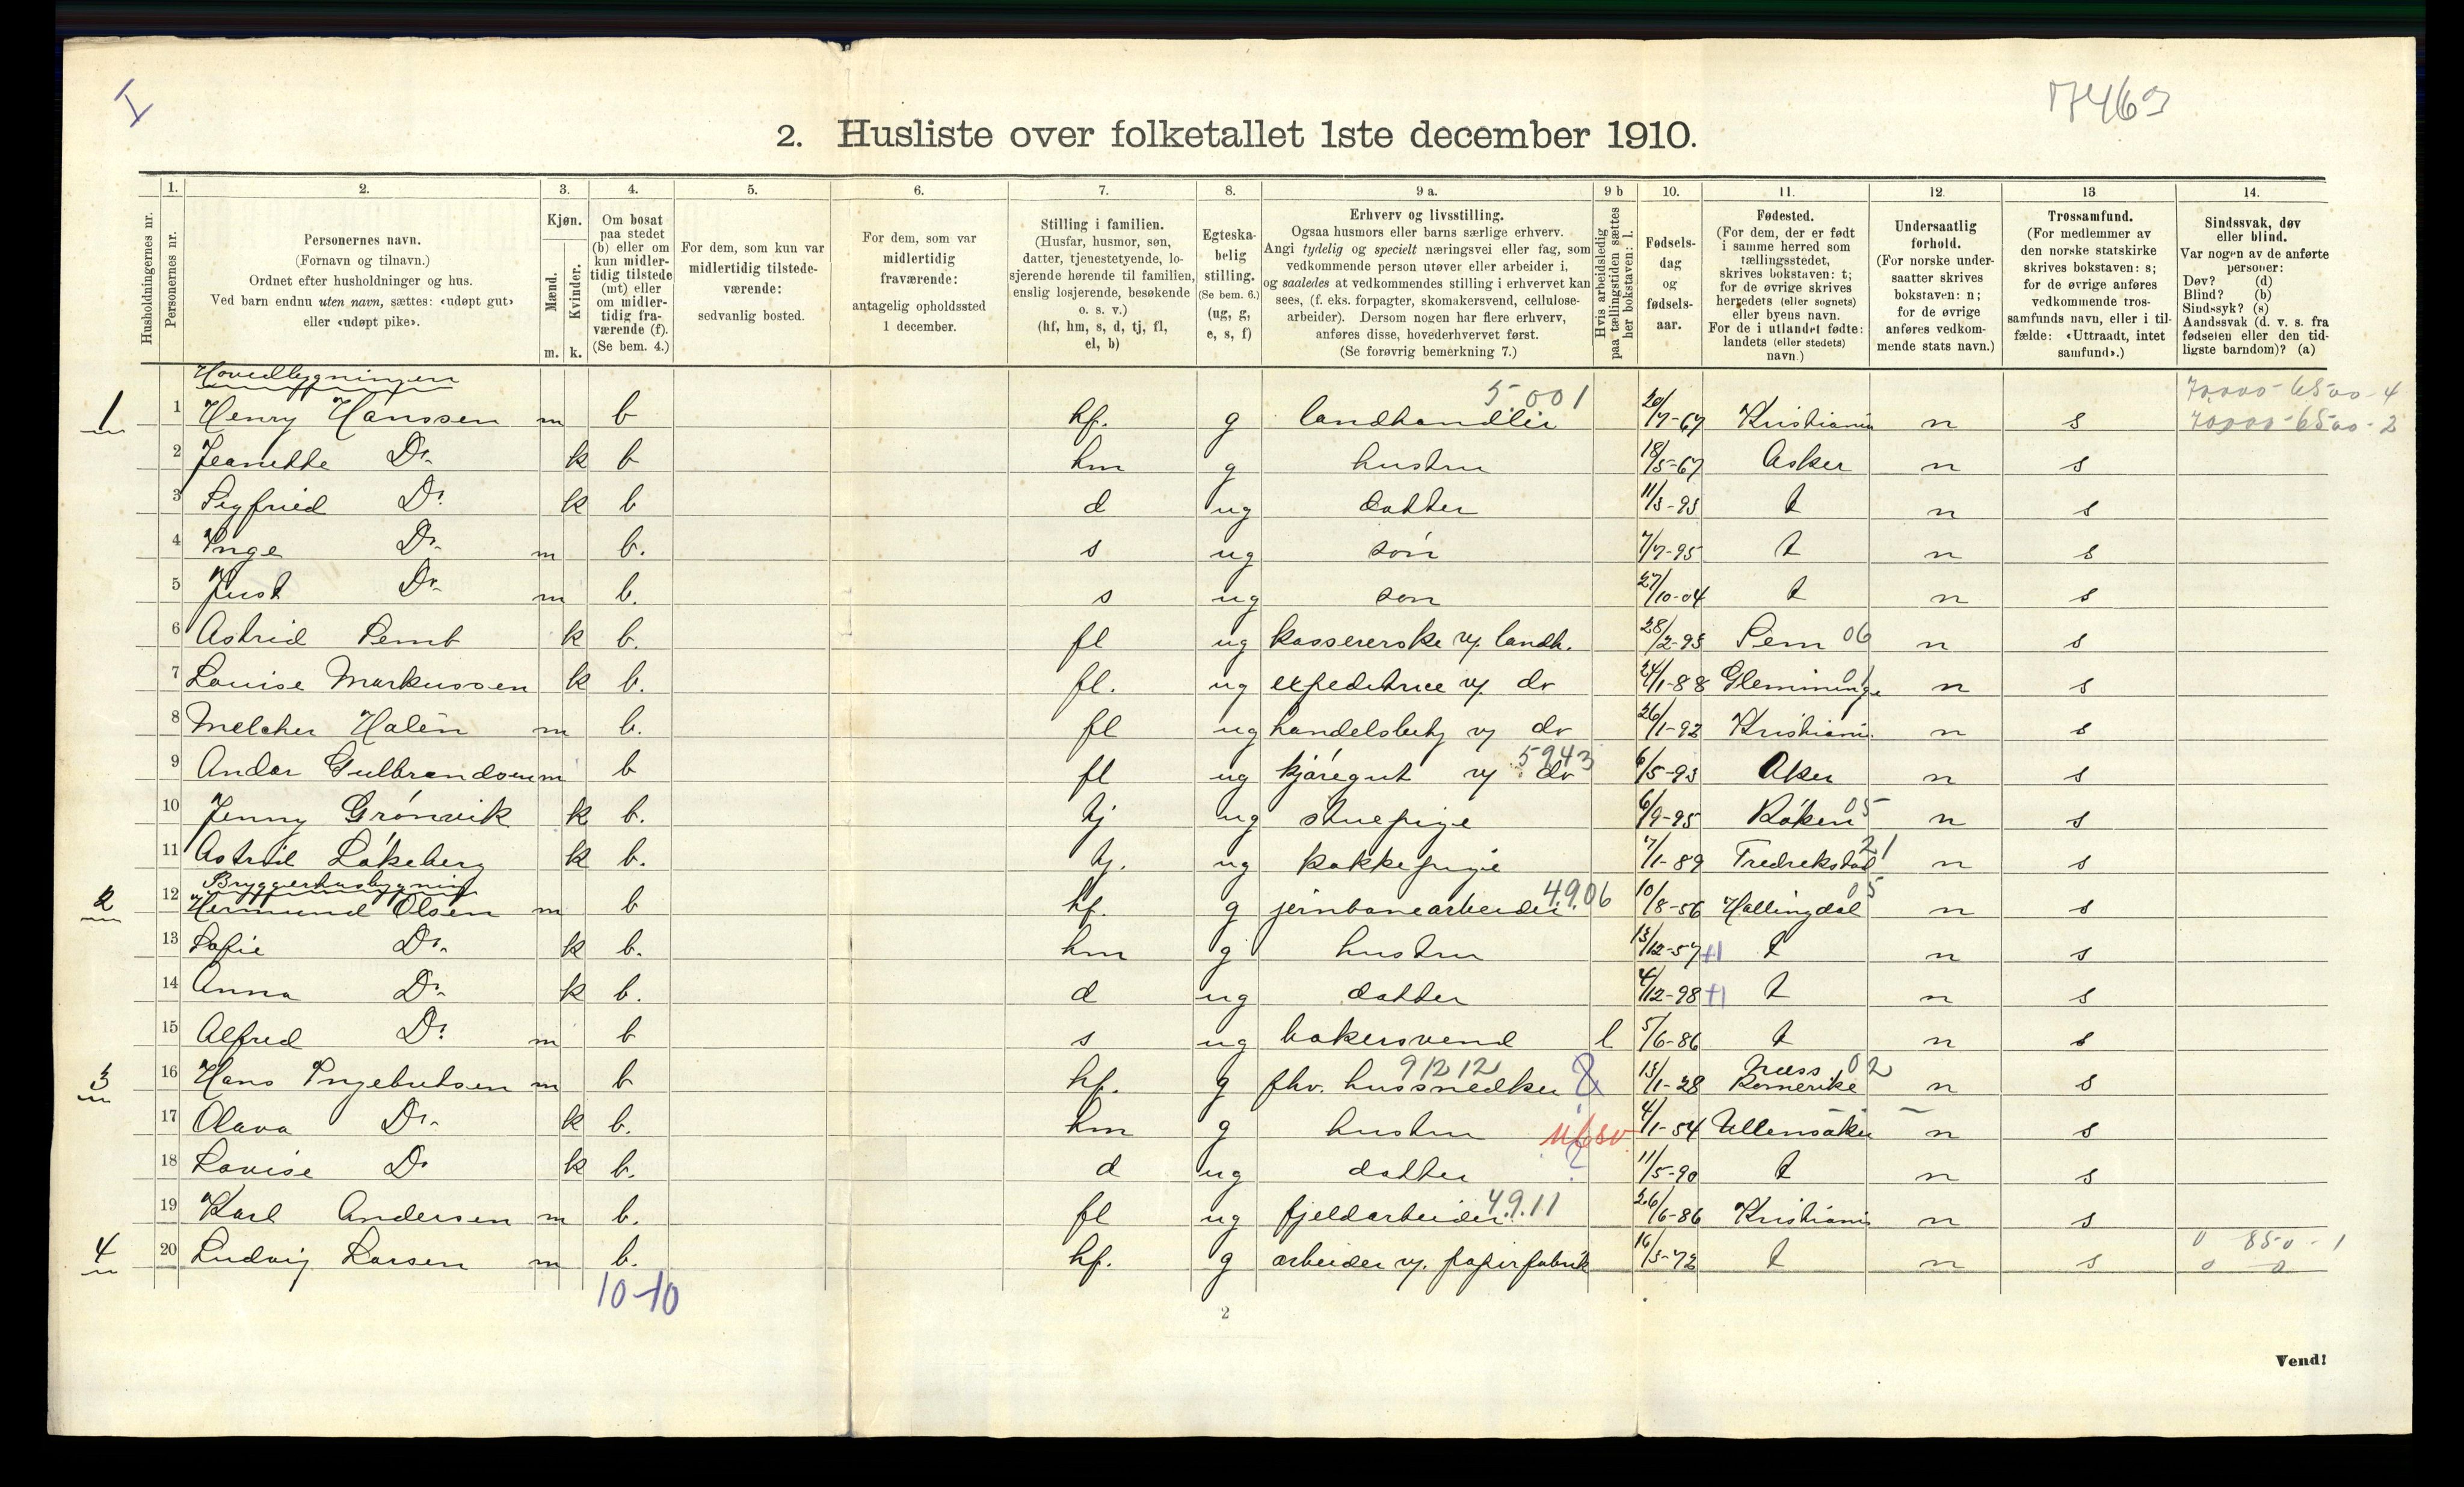 I
7463
2. Husliste over folketallet 1ste december 1910.
Husholdningernes nr.
1. Personernes nr.
2. Personernes navn.
(Fornavn og tilnavn.)
Ordnet efter husholdninger og hus.
Ved barn endnu uten navn, sættes: «udøpt gut»
eller «udøpt pike».
3. Kjøn.
Mænd. Kvinder.
m. k.
4. Om bosat
paa stedet
(b) eller om
kun midler-
tidig tilstede
(mt) eller
om midler-
tidig fra-
værende (f).
(Se bem. 4.)
5. For dem, som kun var
midlertidig tilstede-
værende:
sedvanlig bosted.
6. For dem, som var
midlertidig
fraværende:
antagelig opholdssted
1 december.
7. Stilling i familien.
(Husfar, husmor, søn,
datter, tjenestetyende, lo-
sjerende hørende til familien,
enslig losjerende, besøkende
o. s. v.)
(hf, hm, s, d, tj, fl,
el, b)
8. Egteska-
belig
stilling.
(Se bem. 6.)
(ug, g,
e, s, f)
9 a. Erhverv og livsstilling.
Ogsaa husmors eller barns særlige erhverv.
Angi tydelig og specielt næringsvei eller fag, som
vedkommende person utøver eller arbeider i,
og saaledes at vedkommendes stilling i erhvervet kan
sees, (f. eks. forpagter, skomakersvend, cellulose-
arbeider). Dersom nogen har flere erhverv,
anføres disse, hovederhvervet først.
(Se forøvrig bemerkning 7.)
9 b Hvis arbeidsledig
paa tællingstiden sættes
her bokstaven: l.
10. Fødsels-
dag
og
fødsels-
aar.
11. Fødested.
(For dem, der er født
i samme herred som
tællingsstedet,
skrives bokstaven: t;
for de øvrige skrives
herredets (eller sognets)
eller byens navn.
For de i utlandet fødte:
landets (eller stedets)
navn.)
12. Undersaatlig
forhold.
(For norske under-
saatter skrives
bokstaven: n;
for de øvrige
anføres vedkom-
mende stats navn.)
13 Trossamfund.
(For medlemmer av
den norske statskirke
skrives bokstaven: s;
for de øvrige anføres
vedkommende tros-
samfunds navn, eller i til-
fælde: «Uttraadt, intet
samfund».)
14. Sindssvak, døv
eller blind.
Var nogen av de anførte
personer:
Døv? (d)
Blind? (b)
Sindssyk? (s)
Aandssvak (d. v. s. fra
fødselen eller den tid-
ligste barndom)? (a)
Hovedbygningen 5 001 70,000-6500-4
1 1 Henry Hanssen m b hf. g landhandler 20/7-67 Kristiania n s 70000-6500-2
2 Jeanette Do k b hm g hustru 18/5-67 Asker n s
3 Sigfried Do k b d ug datter 11/3-93 t n s
4 Inge Do m b. s ug søn 7/7-95 t n s
5 Just Do m b. s ug søn 27/10-04 t n s
6 Astrid Semb k b. fl ug kassererske v/ landh. 28/2-93 Sem 06 n s
7 Louise Markussen k b. fl. ug expeditrice v/ do 24/1-88 Glemminge 01 n s
8 Melcher Halén m b. fl ug handelsbetj v/ do 26/1-92 Kristiania n s
9 Andor Gulbrandsen m b fl ug kjøregut v/ do 5943 6/5-93 Aker n s
10 Jenny Grönvik k b. tj ug stuepige 6/9-95 Röken 05 n s
11 Astrid Lökeberg k b. tj. ug kokkepige 7/1-89 Fredrekstad 21 n s
Bryggerhusbygning
2 12 Hermund Olsen m b hf. g jernbanearbeider 4.9.06 10/8-56 Hallingdal 05 n s
13 Sofie Do k b. hm g hustru 13/12-57 +1 t n s
14 Anna Do k b. d ug datter 4/12-98 +1 t n s
15 Alfred Do m b s ug bakersvend l 5/6-86 t n s
3 16 Hans Ingebretsen m b hf. g fhv. hussnedker 91212 13/1-28 Næss Romerike 02 n s
17 Olava Do k b. hm g hustru 4/1-54 Ullensaker n s
18 Lovise Do k b. d ug datter ? 11/5-90 t n s
19 Karl Andersen m b. fl ug fjeldarbeider 4.9.11 26/6-86 Kristiania n s
4 20 Ludvig Larsen m b. hf. g arbeider v/. papirfabrik 16/3-72 t n s 0 850-1
0 0
10-10
2
Vend!